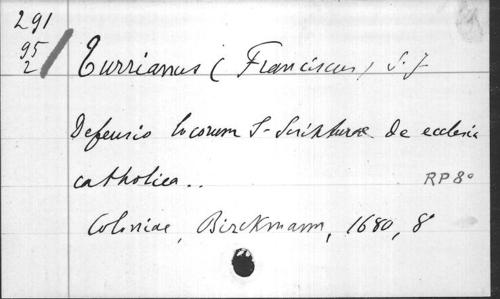 291
95
2
Turrianus (Franciscus) S. J
Defensio locorum S. Scripturae de ecclesia
catholica..
RP 8°
Coloniae, Birckmann, 1680, 8°